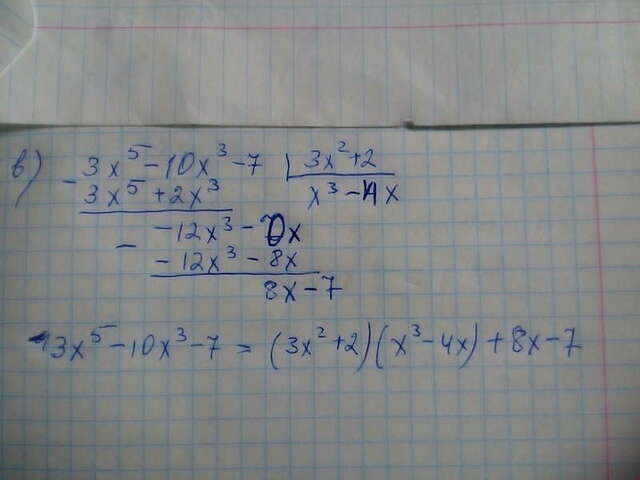 в) - 3x⁵ - 10x³ - 7 | 3x² + 2
3x⁵ + 2x³ x³ - 4x
- -12x³ - 0x
-12x³ - 8x
8x - 7
3x⁵ - 10x³ - 7 = (3x² + 2)(x³ - 4x) + 8x - 7